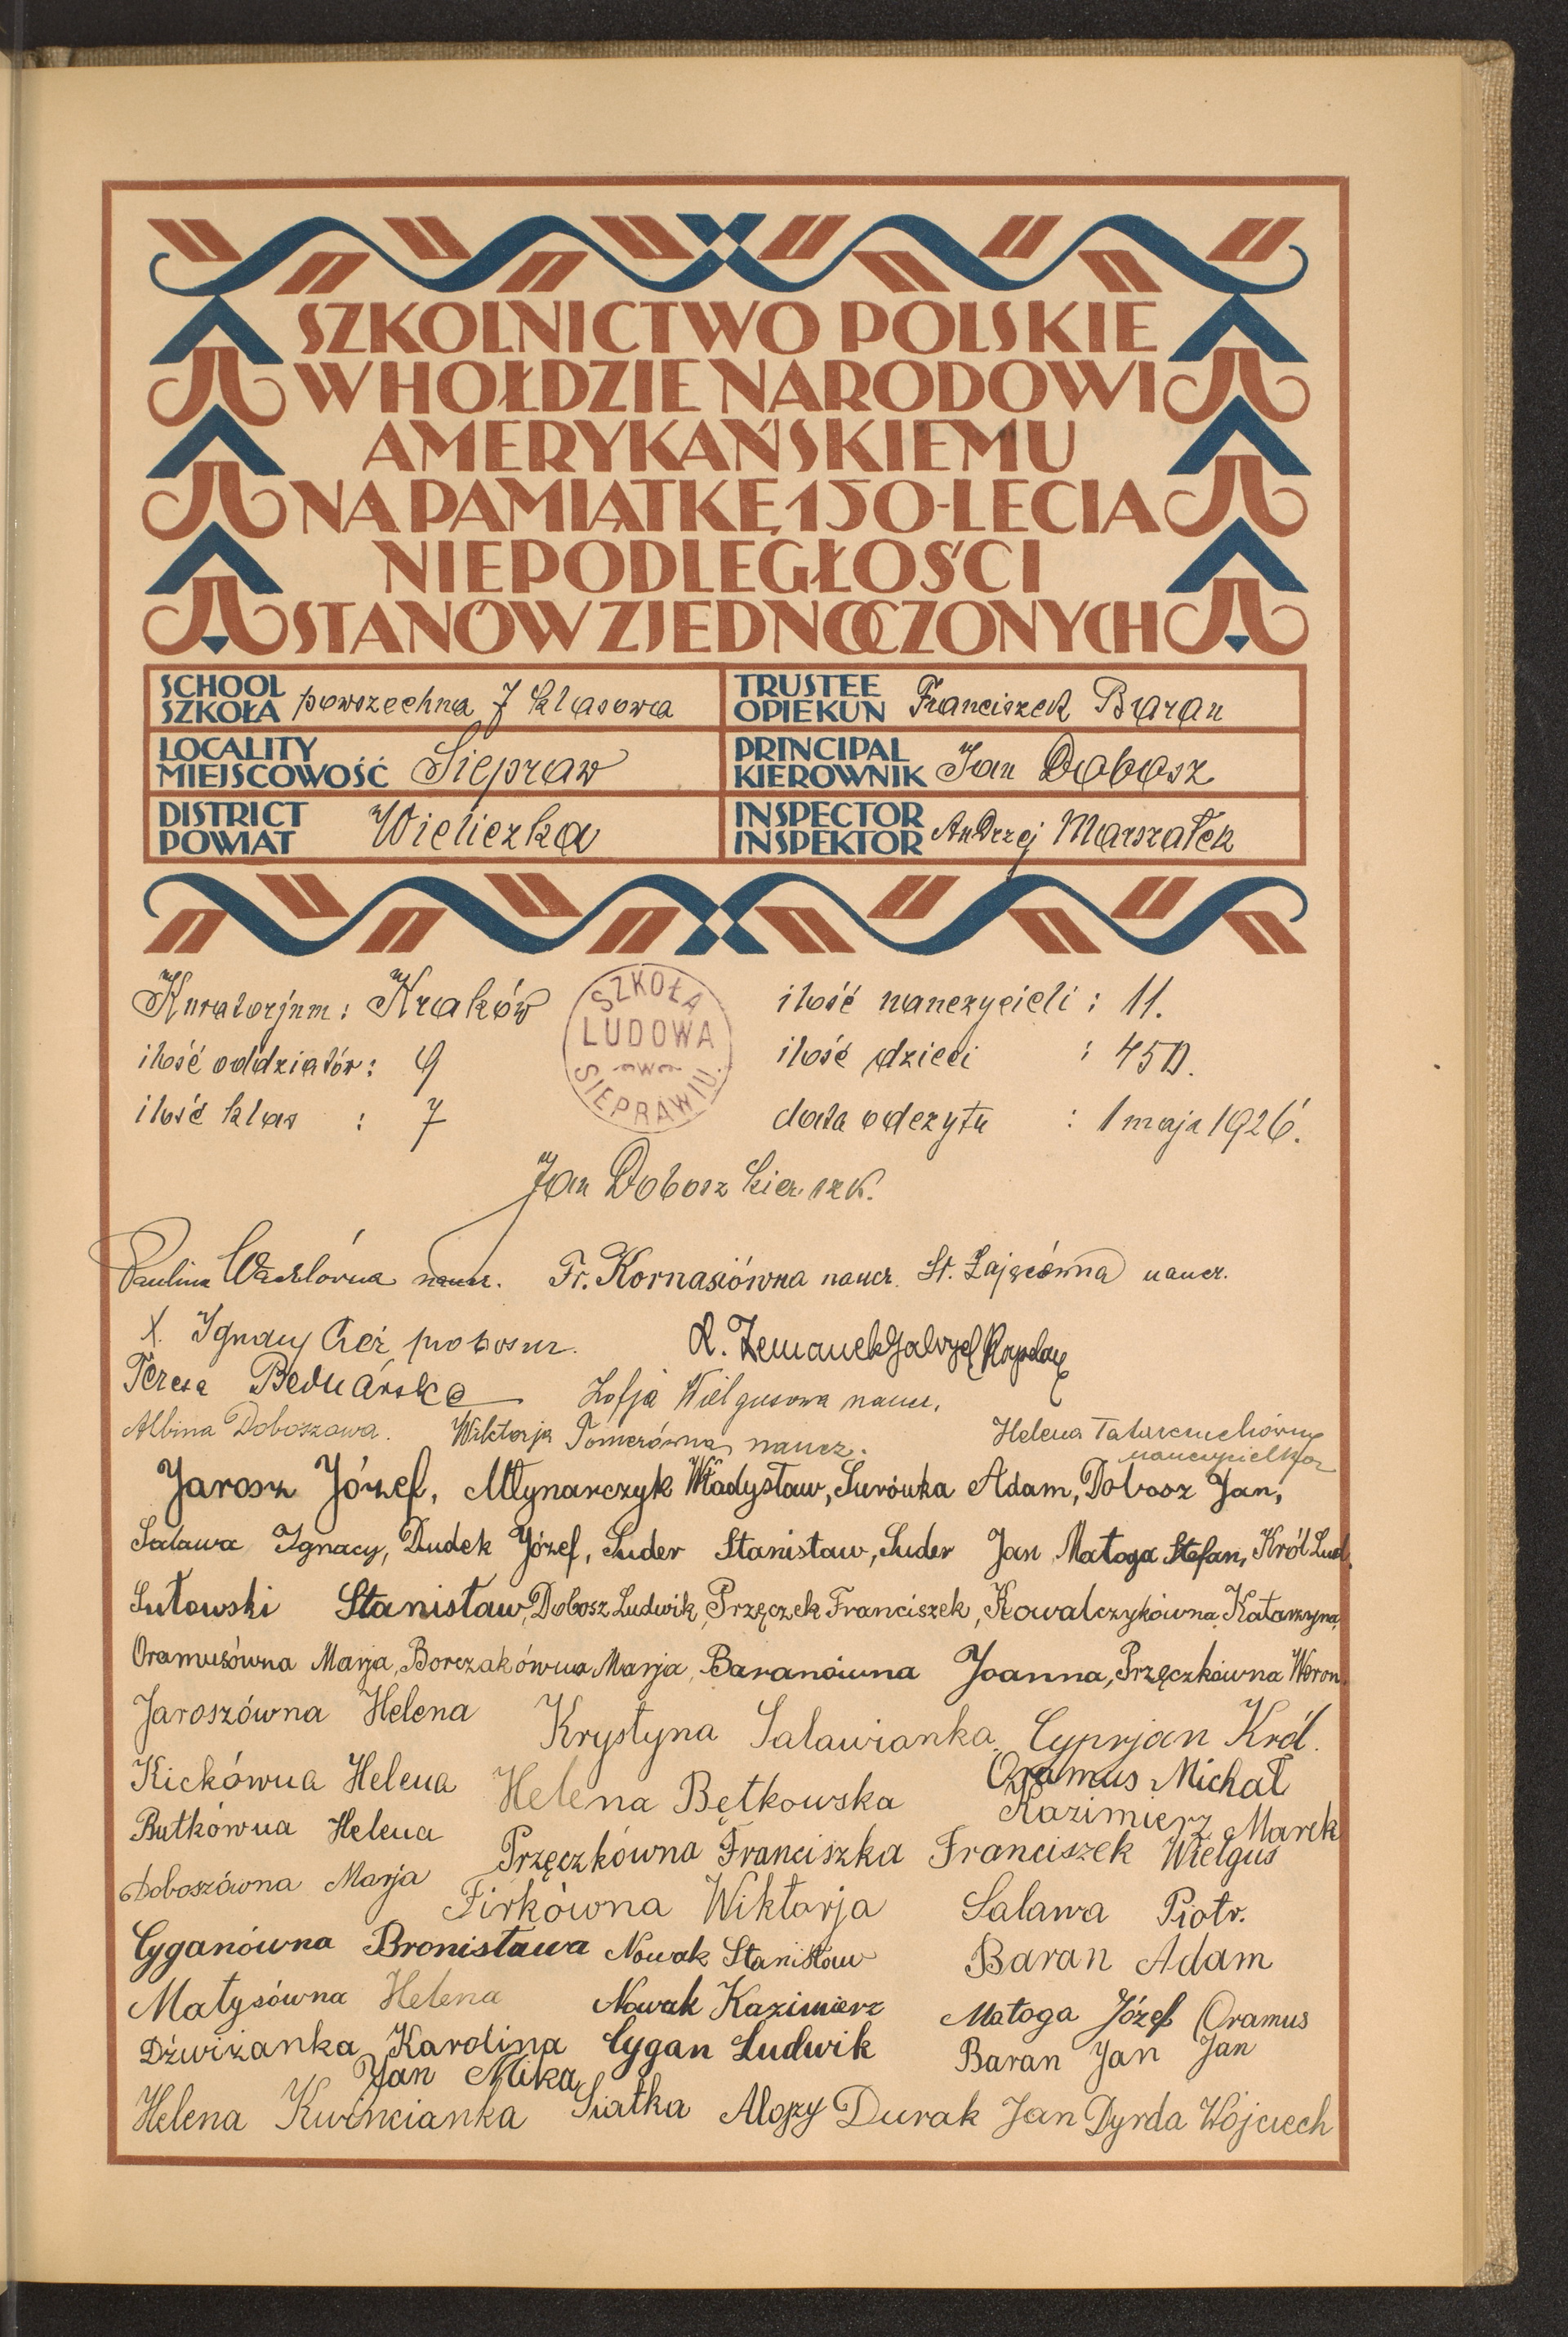 SZKOLNICTWO POLSKIE
W HOŁDZIE NARODOWI
AMERYKAŃSKIEMU
NA PAMIĄTKĘ 150-LECIA
NIEPODLEGŁOŚCI
STANÓW ZJEDNOCZONYCH
SCHOOL
SZKOŁA powszechna 7 klasowa
TRUSTEE
OPIEKUN Franciszek Baran
LOCALITY
MIEJSCOWOŚĆ Siepraw
PRINCIPAL
KIEROWNIK Jan Dobosz
DISTRICT
POWIAT Wieliczka
INSPECTOR
INSPEKTOR Andrzej Marszałek
Kuratorjum: Kraków
ilość oddziałów: 9
ilość klas : 7
SZKOŁA
LUDOWA
W
SIEPRAWIU.
ilość nauczycieli : 11.
ilość dzieci : 450.
data odczytu : 1 maja 1926.
Jan Dobosz kier. szk.
Paulina naucz. Fr. Kornasiówna naucz. St. Zającówna naucz.
X. Ignacy proboszcz.
Teresa Bednarska Zofja Wielgusowa naucz.
Albina Doboszowa. Wiktorja naucz. Helena
nauczycielka
Jarosz Józef, Młynarczyk Władysław, Surówka Adam, Dobosz Jan,
Salawa Ignacy, Dudek Józef, Suder Stanisław, Suder Jan, Matoga Stefan, Król Lud.
Sutowski Stanisław, Dobosz Ludwik, Przęczek Franciszek, Kowalczykówna Katarzyna,
Oramusówna Marja, Borczakówna Marja, Baranówna Joanna, Przęczkówna Weron.
Jaroszówna Helena Krystyna Salawianka. Cyprjan Król.
Kickówna Helena Helena Bętkowska Oramus Michał
Butkówna Helena Kazimierz Marek
Przęczkówna Franciszka Franciszek Wielgus
Doboszówna Marja Firkówna Wiktorja Salawa Piotr.
Cyganówna Bronisława Nowak Stanisław Baran Adam
Małysówna Helena Nowak Kazimierz Matoga Józef Oramus
Dźwiżanka Karolina Cygan Ludwik Baran Jan Jan
Jan Mika
Helena Kwincianka Siatka Alojzy Durak Jan Dyrda Wojciech